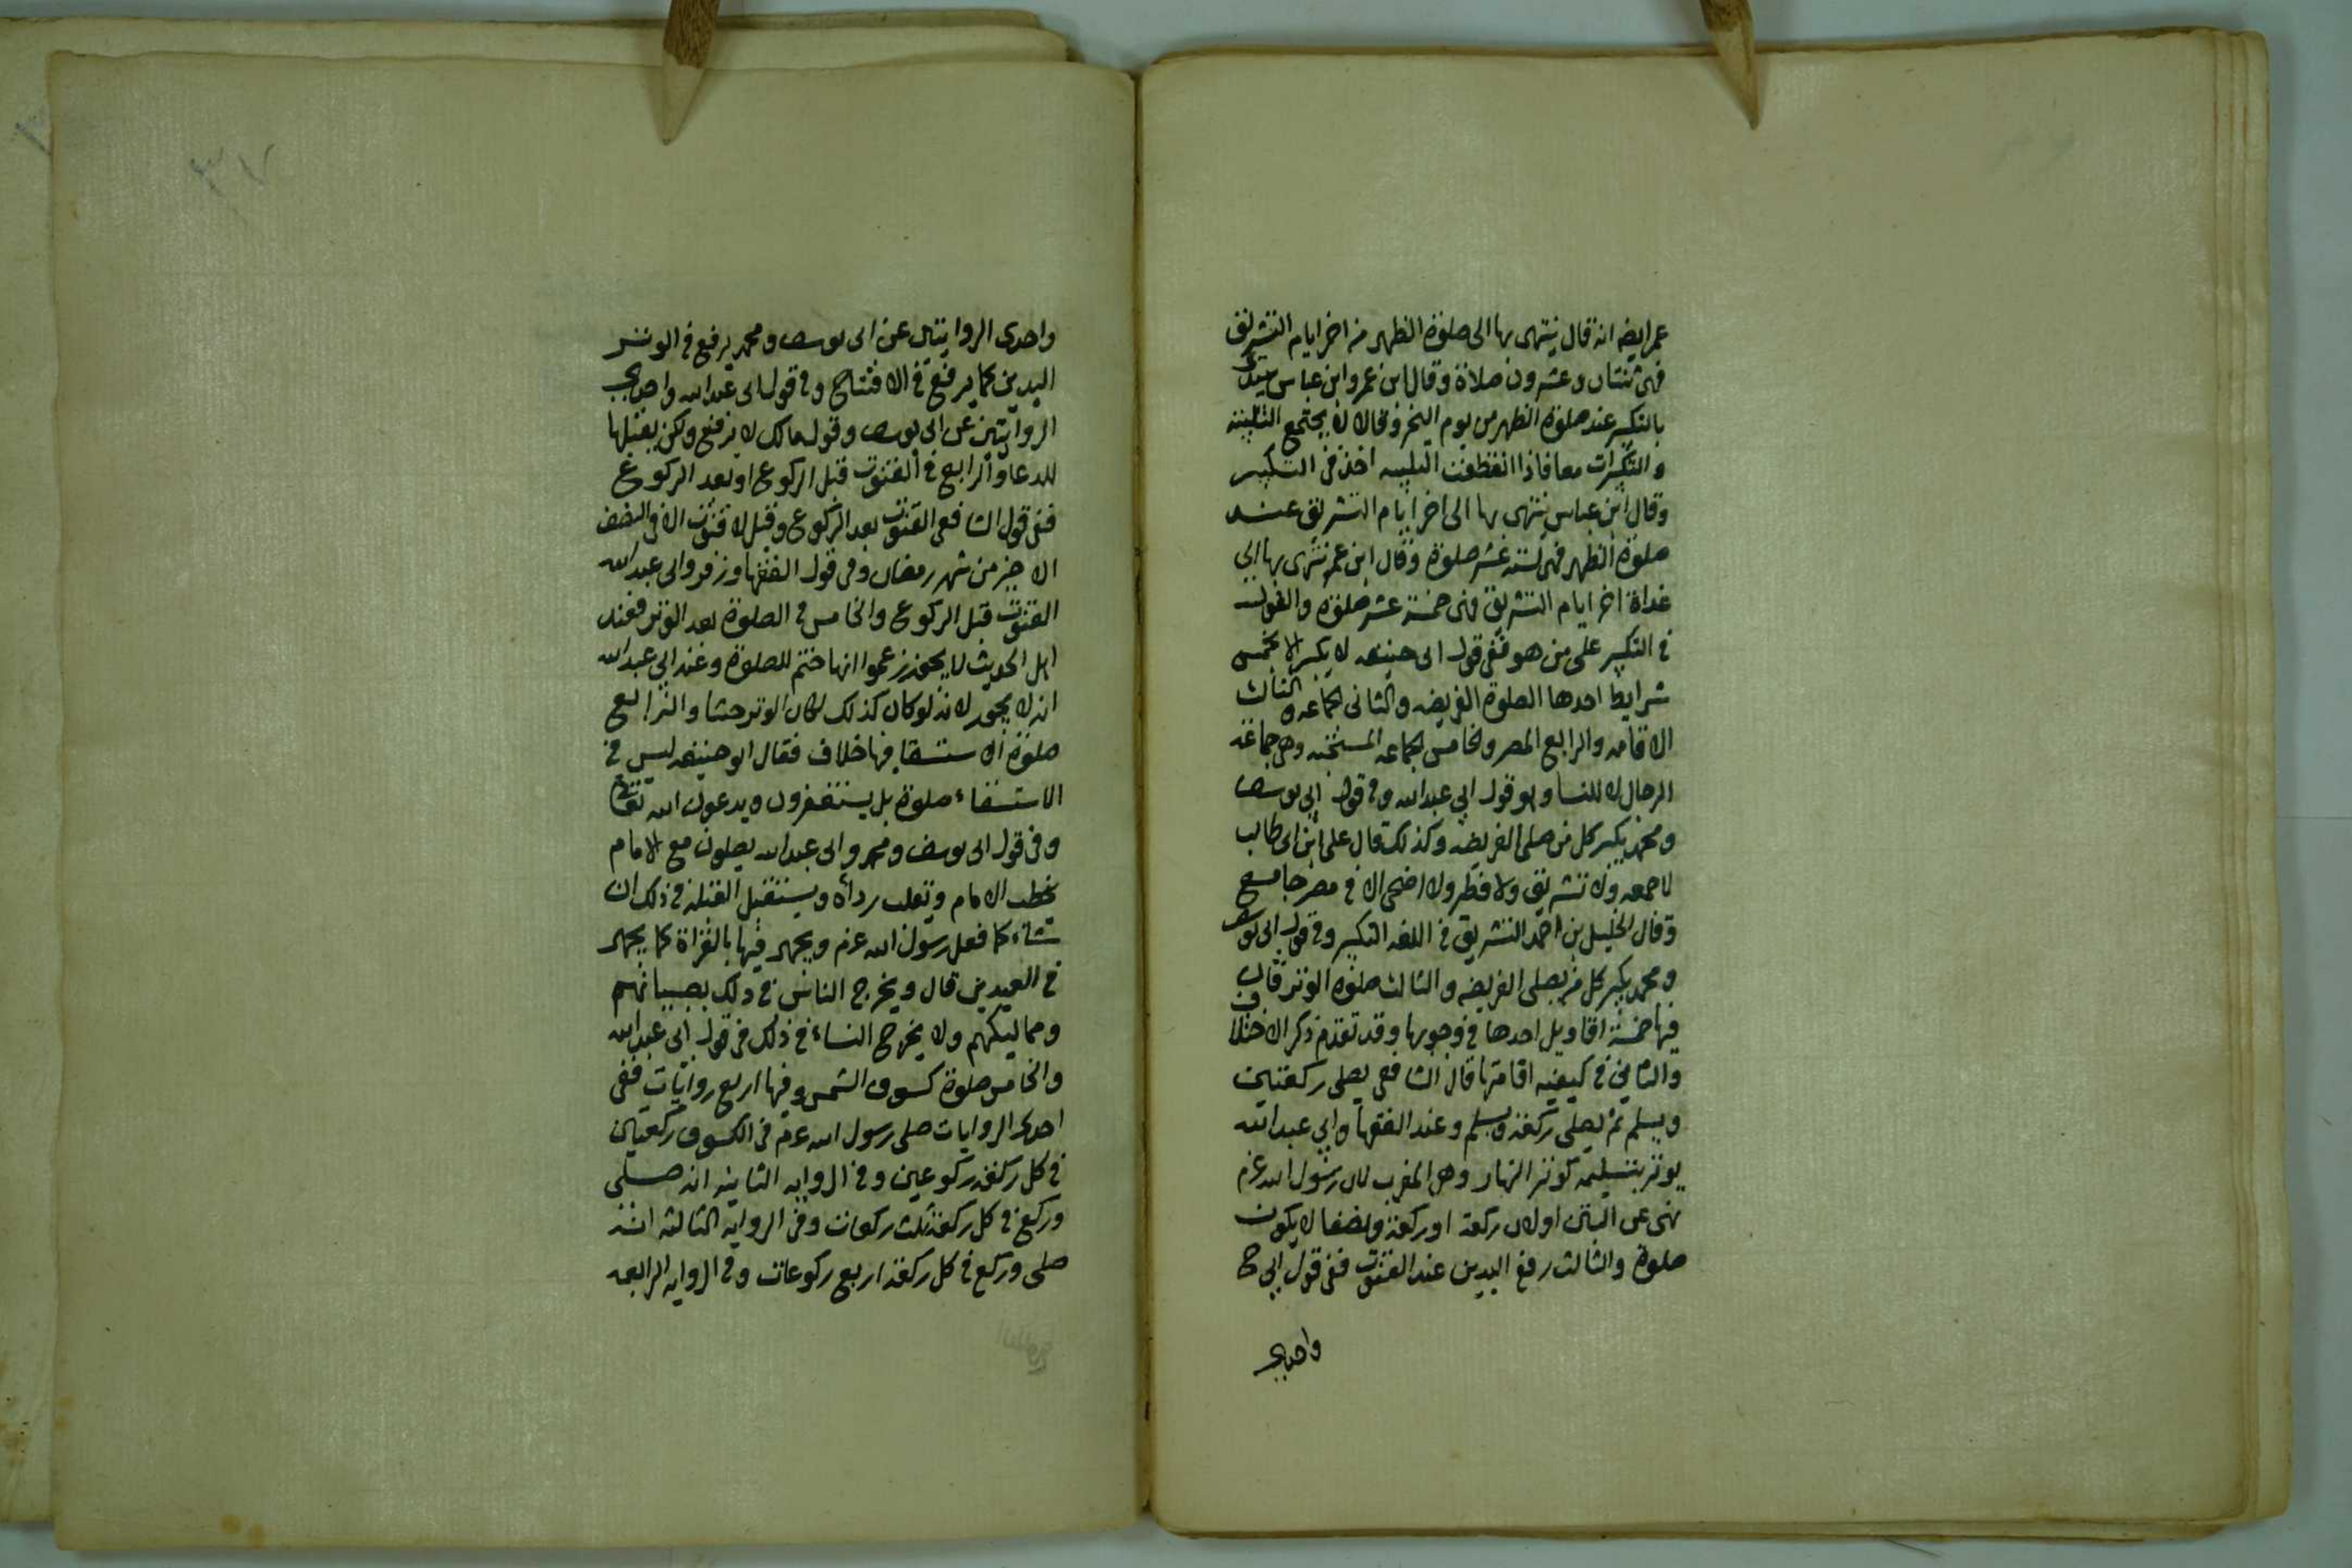 عمر ايضا انه قال ينتهى بها الى صلوة الظهر من اخر ايام التشريق
فهى ثنتان وعشرون صلاة وقال ابن عمر وابن عباس يبتدى
بالتكبير عند صلوة الظهر من يوم النحر وقالا لا يجتمع التلبية
والتكبيرات معا فاذا انقطعت التلبيه اخذ فى التكبير
وقال ابن عباس ينتهى بها الى اخر ايام التشريق عند
صلوة الظهر فهى ستة عشر صلوة وقال ابن عمر ينتهى بها الى
غداة اخر ايام التشريق فهى خمسة عشر صلوة والقول
فى التكبير على من هو ففى قول ابى حنيفه لا يكبر الا بخمس
شرايط احدها الصلوة الفريضه والثانى الجماعه والثالث
الاقامه والرابع المصر والخامس الجماعه المستحبه وهى جماعة
الرجال لا للنسا وهو قول ابى عبدالله وفى قول ابى يوسف
ومحمد يكبر كل من صلى الفريضه وكذلك قال على ابن ابى طالب
لا جمعه ولا تشريق ولا فطر ولا اضحى الا فى مصر جامع
وقال الخليل بن احمد التشريق فى اللغه التكبير وفى قول ابى يوسف
ومحمد يكبر كل من يصلى الفريضه والثالث صلوه الوتر قال
فيها خمسة اقاويل احدها فى وجوبها وقد تقدم ذكر الاختلاف
والثانى فى كيفيه اقامتها قال الشافعى يصلى ركعتين
ويسلم ثم يصلى ركعة ويسلم وعند الفقها وابى عبدالله
يوتر بتسليمه كوتر النهار وهى المغرب لان رسول الله عم
نهى عن البتيرا ولان ركعة او ركعة ونصفا لا يكون
صلوة والثالث رفع اليدين عند القنوت ففى قول ابى ح
واحدى
٣٧
واحدى الروايتين عن ابى يوسف ومحمد يرفع فى الوتر
اليدين كما يرفع فى الافتتاح وفى قول ابى عبدالله واحدى
الروايتين عن ابى يوسف وقول مالك لا يرفع ولكن يقبلها
للدعا والرابع فى القنوت قبل الركوع او بعد الركوع
ففى قول الشافعى القنوت بعد الركوع وقيل لا قنوت الا فى النصف
الاخير من شهر رمضان وفى قول الفقها وزفر وابى عبدالله
القنوت قبل الركوع والخامس فى الصلوة بعد الوتر فعند
اهل الحديث لا يجوز زعموا انها ختم للصلوة وعند ابى عبدالله
انه لا يجوز لانه لو كان كذلك لكان الوتر حشا والرابع
صلوة الاستسقا فيها خلاف فقال ابو حنيفه ليس فى
الاستسقاء صلوة بل يستغفرون ويدعون الله تعالى
وفى قول ابى يوسف ومحمد وابى عبدالله يصلون مع الامام
يخطب الامام وتقلب رداه ويستقبل القبله فى ذلك ان
شاء كما فعل رسول الله عم ويجهر فيها بالقراة كما يجهر
فى العيدين قال ويخرج الناس فى ذلك بصبيانهم
ومماليكهم ولا يخرج النساء فى ذلك فى قول ابى عبدالله
والخامس صلوة كسوف الشمس وفيها اربع روايات ففى
احدى الروايات صلى رسول الله عم فى الكسوف ركعتين
فى كل ركعة ركوعين وفى الروايه الثانيه انه صلى
وركع فى كل ركعة ثلث ركعات وفى الرواية الثالثه انه
صلى وركع فى كل ركعة اربع ركوعات وفى الروايه الرابعه